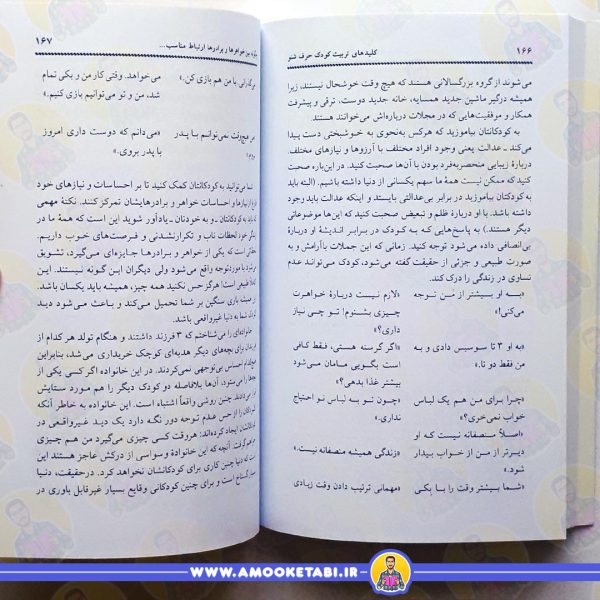 ۱۶۶
کلیدهای تربیت کودک حرف شنو
می‌شوند از گروه بزرگسالانی هستند که هیچ وقت خوشحال نیستند، زیرا
همیشه درگیر ماشین جدید همسایه، خانه جدید دوست، ترقی و پیشرفت
همکار و موفقیت‌هایی که در مجلات درباره‌اش می‌خوانند هستند.
به کودکانتان بیاموزید که هرکس به‌نحوی به خوشبختی دست پیدا
می‌کند ـ عدالت یعنی وجود افراد مختلف با آرزوها و نیازهای مختلف.
دربارهٔ زیبایی منحصربه‌فرد بودن با آن‌ها صحبت کنید. در این‌باره صحبت
کنید که ممکن نیست همهٔ ما سهم یکسانی از دنیا داشته باشیم. (البته باید
به کودکتان بیاموزید در برابر بی‌عدالتی بایستد و اینکه عدالت باید وجود
داشته باشد. با او دربارهٔ ظلم و تبعیض صحبت کنید که این‌ها موضوعاتی
دیگر هستند.) به پاسخ‌هایی که به کودک در برابر اندیشهٔ او دربارهٔ
بی‌انصافی داده می‌شود توجه کنید. زمانی که این جملات با آرامش و به
صورت طبیعی و جزئی از حقیقت گفته می‌شود، کودک می‌تواند عدم
تساوی در زندگی را درک کند.
«به او بیشتر از من توجه «لازم نیست دربارهٔ خواهرت
می‌کنی!» چیزی بشنوم! تو چی نیاز
داری؟»
«به او ۳ تا سوسیس دادی و به «اگر گرسنه هستی، فقط کافی
من فقط دو تا.» است بگویی مامان می‌شود
بیشتر غذا بدهی؟»
«چرا برای من هم یک لباس «چون تو به لباس نو احتیاج
خواب نمی‌خری؟» نداری.»
«اصلاً منصفانه نیست که او «زندگی همیشه منصفانه نیست.»
دیرتر از من از خواب بیدار
شود.»
«شما بیشتر وقت را با یکی «مهمانی ترتیب دادن وقت زیادی
بین خواهرها و برادرها ارتباط مناسب...
۱۶۷
با من هم بازی کن.» می‌خواهد. وقتی کار من و یکی تمام
شد، من و تو می‌توانیم بازی کنیم.»
هیچ‌وقت نمی‌توانم با پدر «می‌دانم که دوست داری امروز
با پدر بروی.»
شما می‌توانید به کودکانتان کمک کنید تا بر احساسات و نیازهای خود
نیازها و احساسات خواهر و برادرهایشان تمرکز کنند. نکتهٔ مهمی
به کودکانتان ـ و به خودتان ـ یادآور شوید این است که همهٔ ما در
خود لحظات ناب و تکرارنشدنی و فرصت‌های خوب داریم.
وقتی که یکی از خواهر و برادرها جایزه‌ای می‌گیرد، تشویق
مورد توجه واقع می‌شود ولی دیگران این گونه نیستند. این
طبیعی است! هرگز حس نکنید همه چیز، همیشه باید یکسان باشد.
باری سنگین بر شما تحمیل می‌کند و باعث می‌شود دید
شما به دنیا غیرواقعی باشد.
خانواده‌ای را می‌شناختم که ۳ فرزند داشتند و هنگام تولد هر کدام از
برای بچه‌های دیگر هدیه‌ای کوچک خریداری می‌شد، بنابراین
احساس بی‌توجهی نمی‌کردند. در این خانواده اگر کسی یکی از
می‌کرد، آن‌ها بلافاصله دو کودک دیگر را هم مورد ستایش
می‌دادند. چنین روشی واقعاً اشتباه است. این خانواده به خاطر آنکه
را از حس عدم توجه دور نگه دارد یک دید غیرواقعی در
ایجاد کرده‌اند: هروقت کسی چیزی می‌گیرد من هم چیزی
آنچه که این خانوادهٔ وسواسی از درکش عاجز هستند این
که دنیا چنین کاری برای کودکانشان نخواهد کرد. درحقیقت، دنیا
است و برای چنین کودکانی وقایع بسیار غیرقابل باوری در
WWW.AMOOKETABI.IR